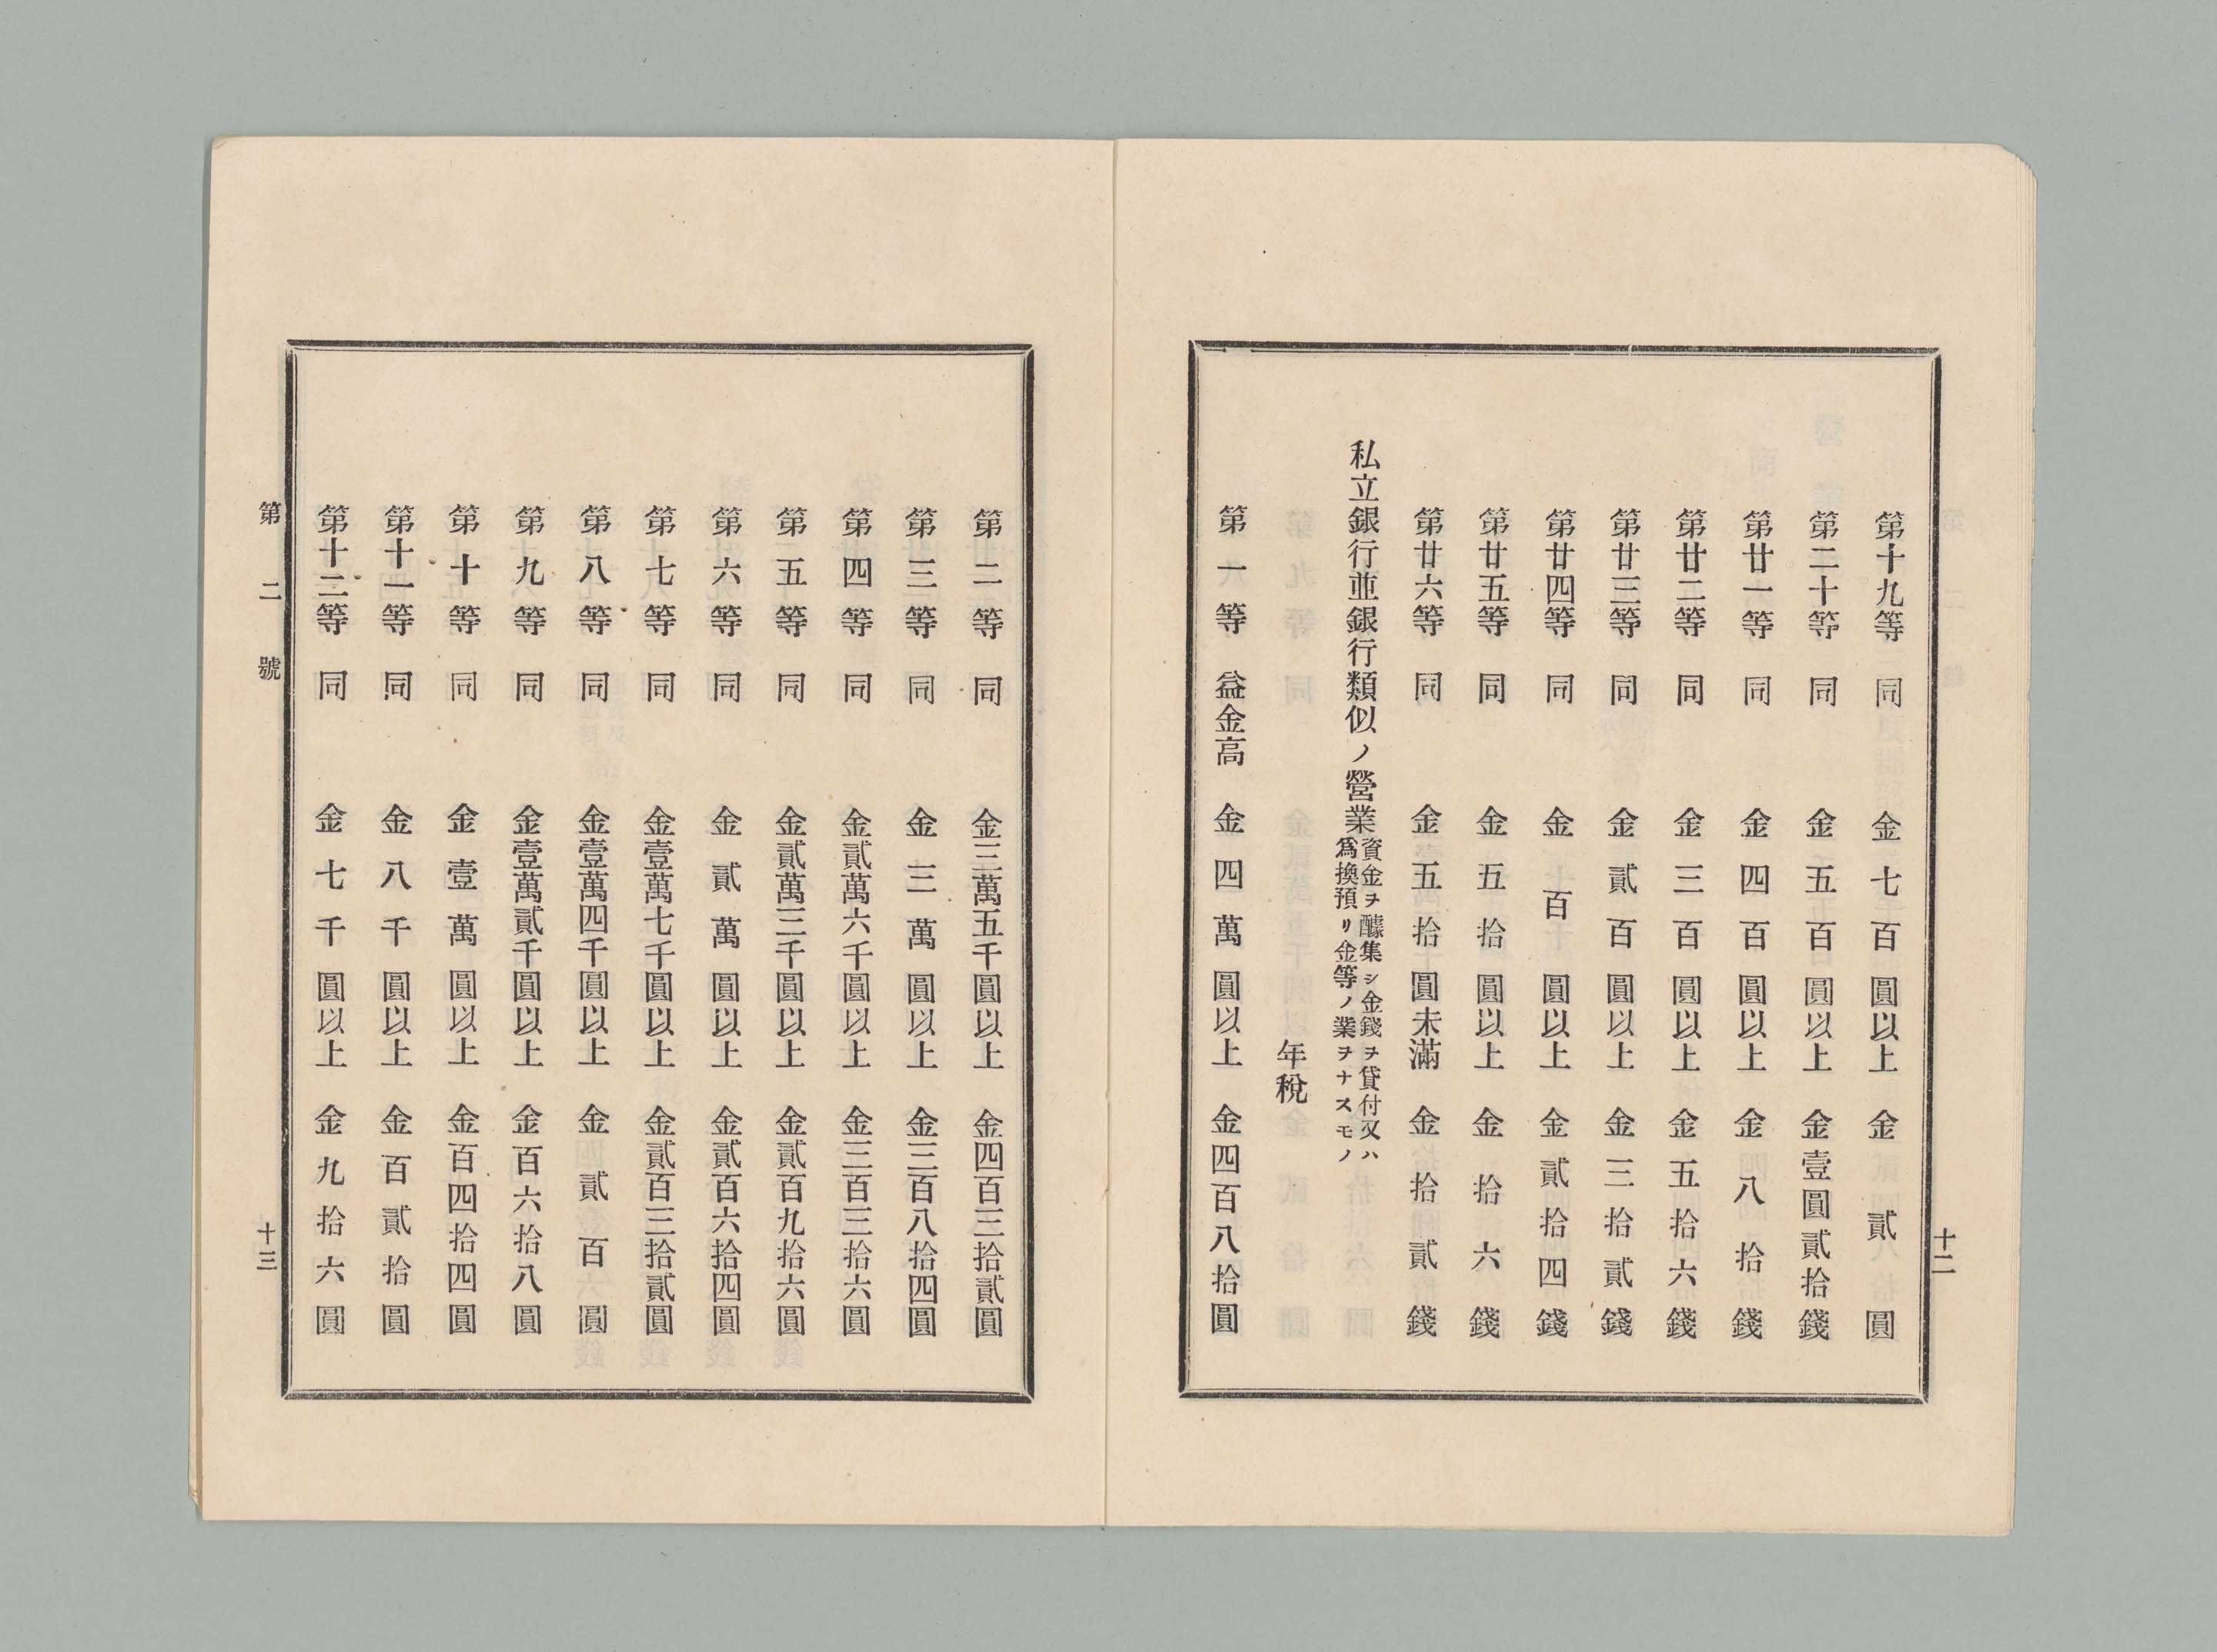 十二
第十九等 同 金七百圓以上 金貳圓
第二十等 同 金五百圓以上 金壹圓貳拾錢
第廿一等 同 金四百圓以上 金八拾錢
第廿二等 同 金三百圓以上 金五拾六錢
第廿三等 同 金貳百圓以上 金三拾貳錢
第廿四等 同 金百圓以上 金貳拾四錢
第廿五等 同 金五拾圓以上 金拾六錢
第廿六等 同 金五拾圓未滿 金拾貳錢
私立銀行並銀行類似ノ營業資金ヲ醵集シ金錢ヲ貸付又ハ
爲換預リ金等ノ業ヲナスモノ
年稅
第一等 益金高 金四萬圓以上 金四百八拾圓
第二等 同 金三萬五千圓以上 金四百三拾貳圓
第三等 同 金三萬圓以上 金三百八拾四圓
第四等 同 金貳萬六千圓以上 金三百三拾六圓
第五等 同 金貳萬三千圓以上 金貳百九拾六圓
第六等 同 金貳萬圓以上 金貳百六拾四圓
第七等 同 金壹萬七千圓以上 金貳百三拾貳圓
第八等 同 金壹萬四千圓以上 金貳百圓
第九等 同 金壹萬貳千圓以上 金百六拾八圓
第十等 同 金壹萬圓以上 金百四拾四圓
第十一等 同 金八千圓以上 金百貳拾圓
第十二等 同 金七千圓以上 金九拾六圓
第二號
十三